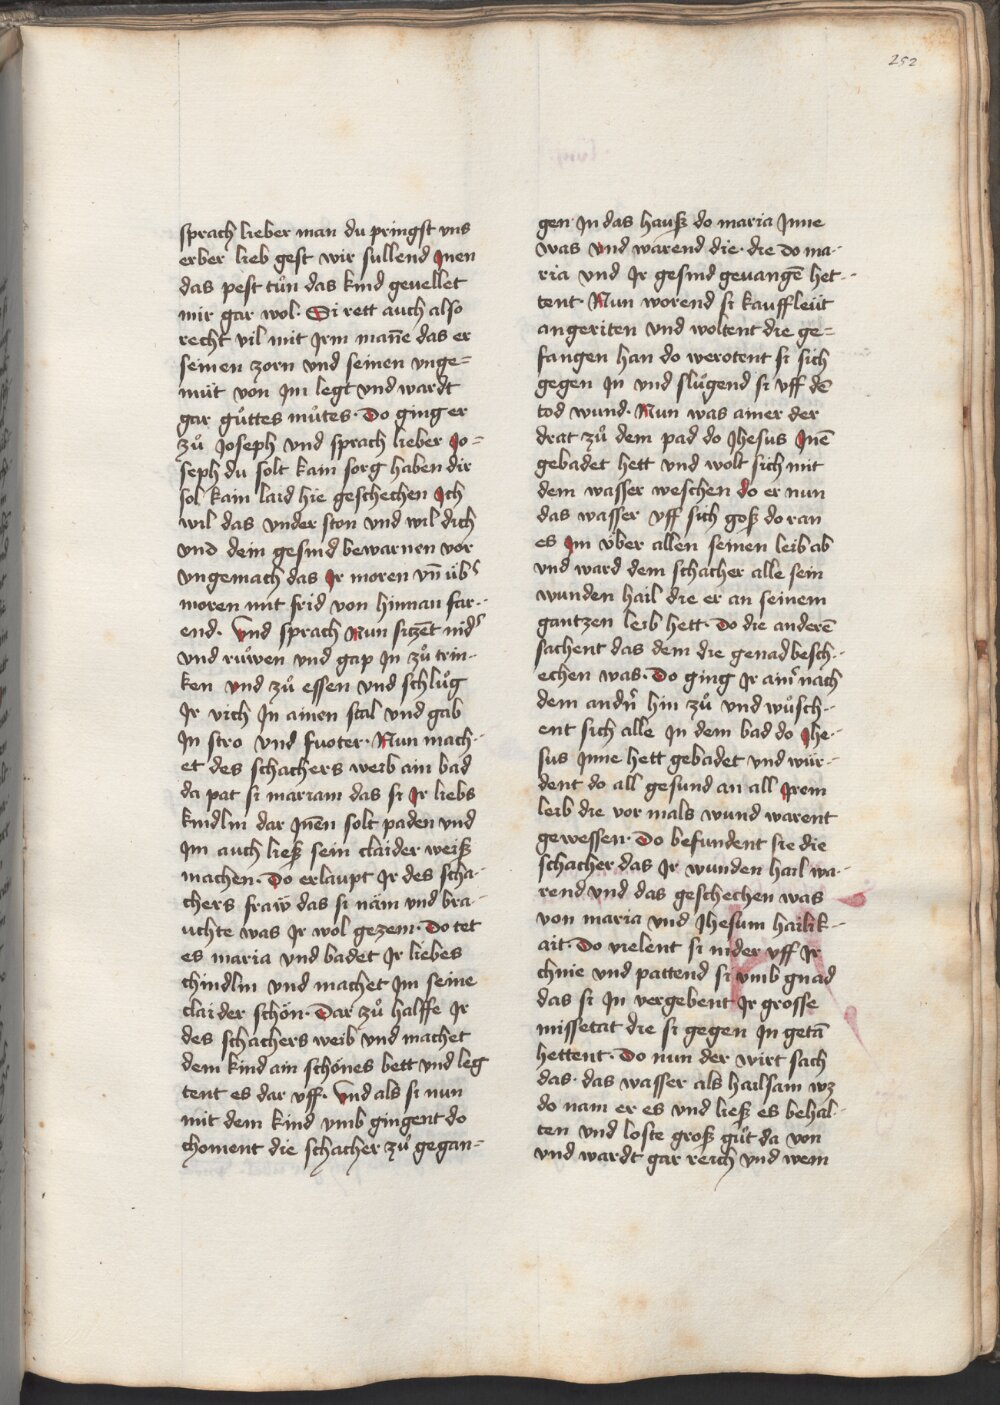 252
sprach lieber man du pringst vns
erber lieb gest wir sullend Jnen
das pest tůn das kind geuellet
mir gar wol. Si rett auch also
recht vil mit Jrm man̄e das er
seinen zorn vnd seinen vnge=
müt von Jm legt vnd wardt
gar gůttes můtes. Do ging er
zů Joseph vnd sprach lieber Jo=
seph du solt kain sorg haben dir
sol kain laid hie geschechen Jch
wil das vnder ston vnd wil dich
vnd dein gesind bewarnen vor
vngemach das Jr moren vn̄ üb᷑
moren mit frid von hinnan far-
end. Vnd sprach Nun siczēt nid᷑
vnd růwen vnd gap Jn zů trin-
ken vnd zů essen vnd schlůg
Jr vich Jn ainen stal vnd gab
Jn stro vnd fuoter. Nun mach-
et des schachers weib ain bad
da pat si mariam das si Jr liebs
kindlin dar Jnēn solt paden vnd
Jm auch ließ sein claider weiß
machen. Do erlaupt Jr des scha-
chers fraẅ das si näm vnd bra-
uchte was Jr wol gezem. Do tet
es maria vnd badet Jr liebes
chindlin vnd machet Jm seine
claider schön. Dar zů halffe Jr
des schachers weib vnd machet
dem kind ain schönes bett vnd leg
tent es dar vff. Vnd als si nun
mit dem kind vmb gingent do
choment die schacher zů gegan=
gen. Jn das hauß do maria Jnne
was vnd warend die. die do ma-
ria vnd Jr gesind geuangē het-
tent. Nun worend si kauffleüt
angeriten vnd woltent die ge=
fangen han do werotent si sich
gegen Jn vnd slůgend si vff dē
tod wund. Nun was ainer der
drat zů dem pad do Jhesus Jnē
gebadet hett vnd wolt sich mit
dem wasser weschen do er nun
das wasser vff sich goß do ran
es Jm über allen seinen leib ab
vnd ward dem schacher alle sein
wunden hail die er an seinem
gantzen leib hett. Do die anderē
sachent das dem die genad besch-
echen was. Do ging Jr ain᷑ nach
dem andn᷑ hin zů vnd wůsch-
ent sich alle Jn dem bad do Jhe-
sus Jnne hett gebadet vnd wür-
dent do all gesund an all Jrem
leib die vor mals wund warent
gewessen. Do befundent sie die
schacher das Jr wunden hail wa-
rend vnd das geschechen was
von maria vnd Jhesum hailik-
ait. Do vielent si nider vff Jr
chnie vnd pattend si vmb gnad
das si Jn vergebent Jr grosse
missetat die si gegen Jn getā
hettent. Do nun der wirt sach
das. das wasser als hailsam wz
do nam er es vnd ließ es behal-
ten vnd loste groß gůt da von
vnd wardt gar reich vnd wem